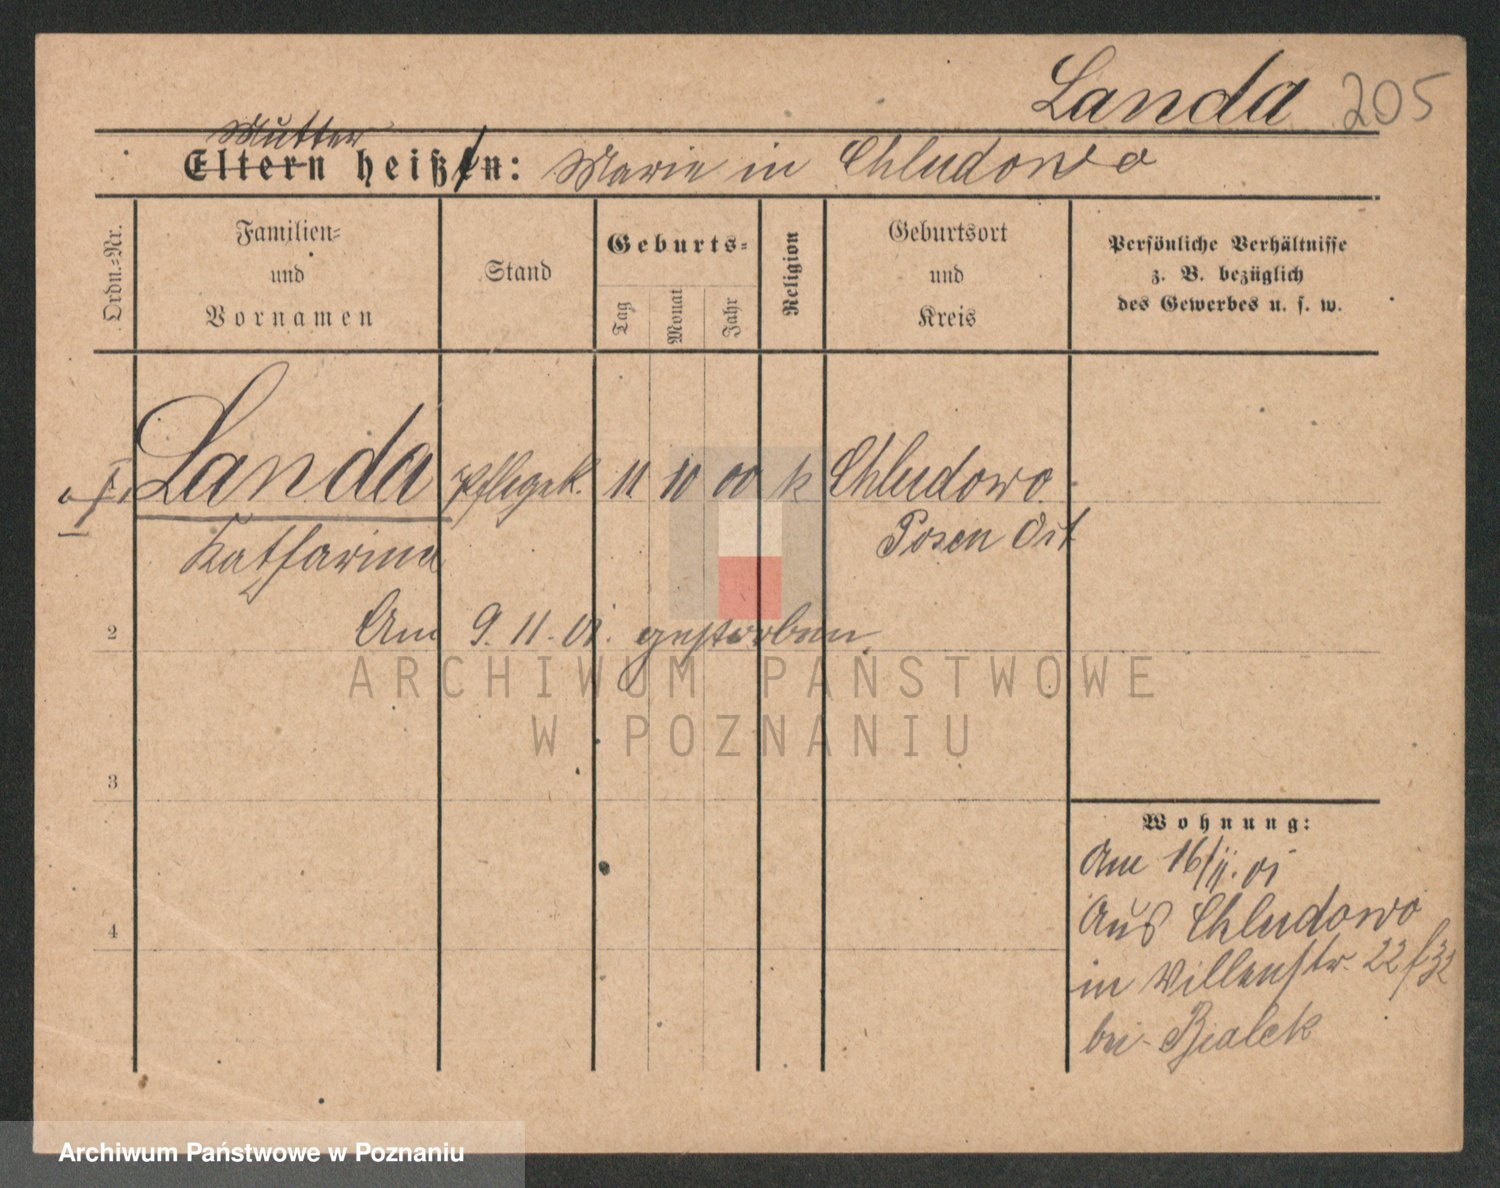 Landa 205
Mutter
Eltern heißen: Marie in Chludowo
Ordn.-Nr.
Familien-
und
Vornamen
Stand
Geburts-
Tag
Monat
Jahr
Religion
Geburtsort
und
Kreis
Persönliche Verhältnisse
z. B. bezüglich
des Gewerbes u. s. w.
Landa Pflegek. 11 10 00 k Chludowo
Katharina Posen Ost
2 Am 9. 11. 01. gestorben
ARCHIWUM PAŃSTWOWE
W POZNANIU
3
Wohnung:
Am 16/11. 01
Aus Chludowo
4
in Villenstr. 22
bei Bialek
Archiwum Państwowe w Poznaniu